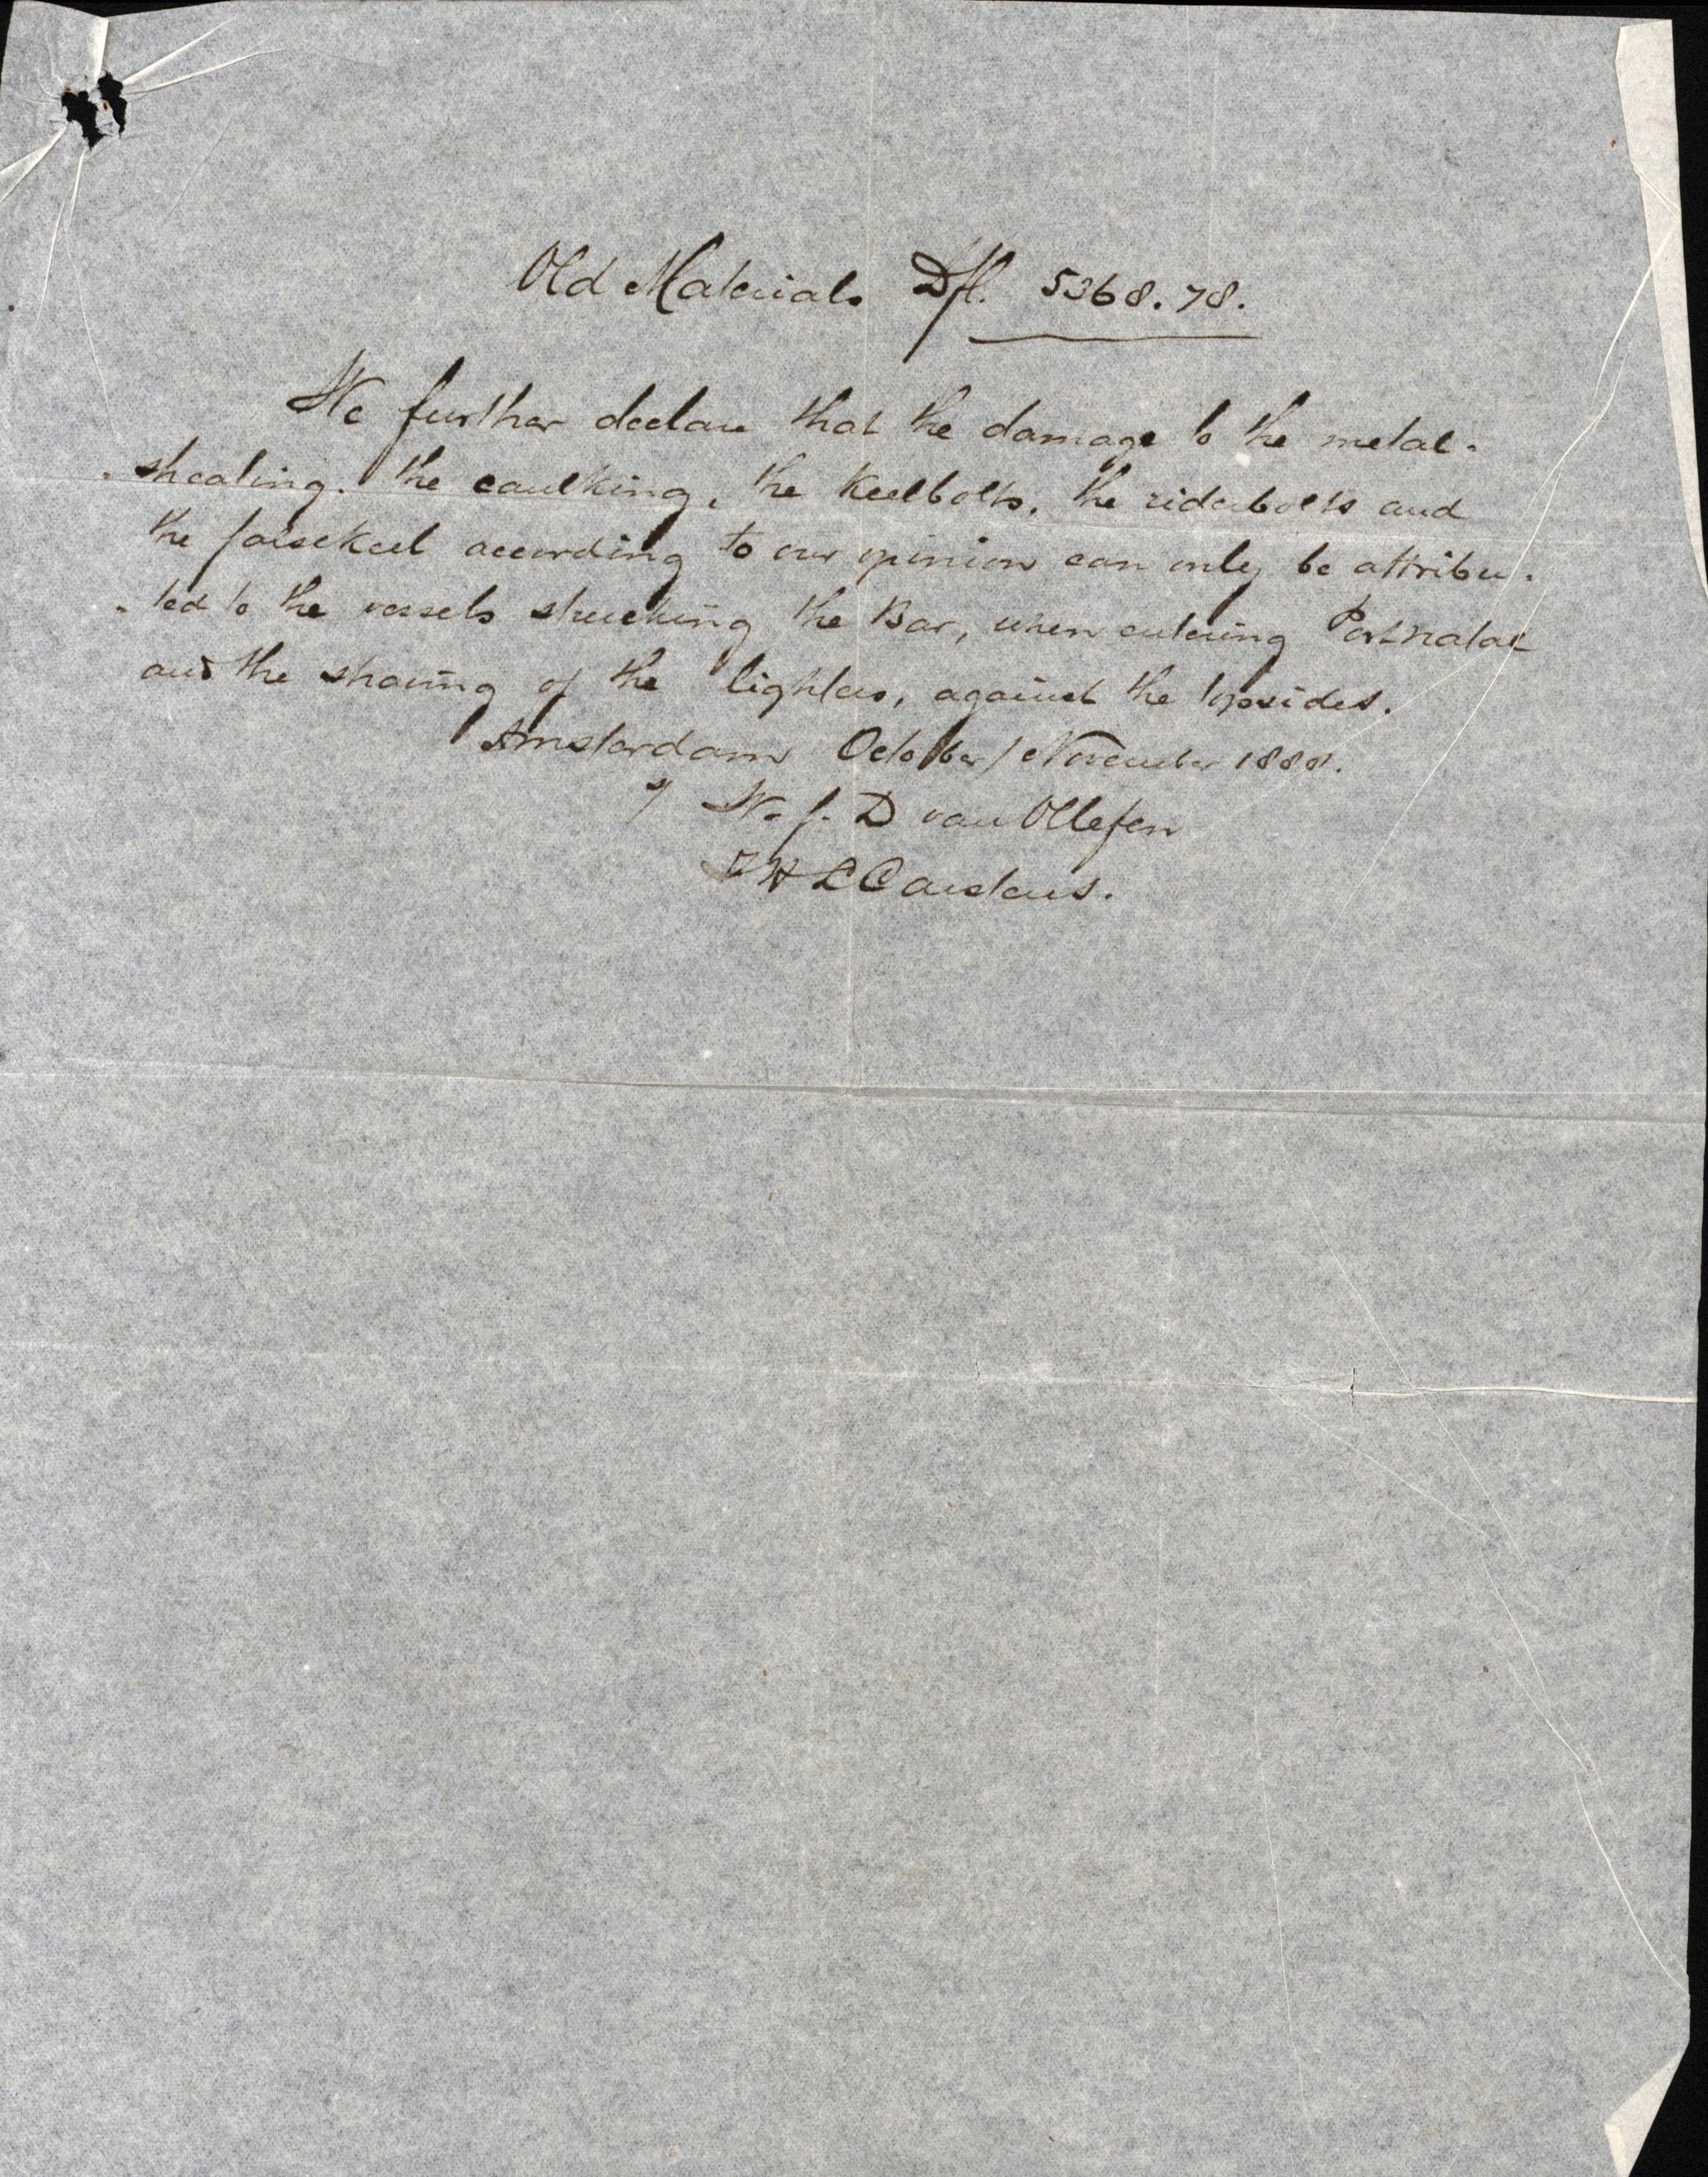 Old Materials Dfl. 5368.78.
We further declare that the damage to the metal-
-sheating. the caulking, the Keelbolts, the riderbolts and
the falsekeel according to our opinion can only be attribu-
-ted to the vessels strucking the Bar, when entering Portnatal
and the shaving of the lighters, against the topsides.
Amsterdam October/November 1888.
s/ W. J. D van Ollefen
F H L Carstens.